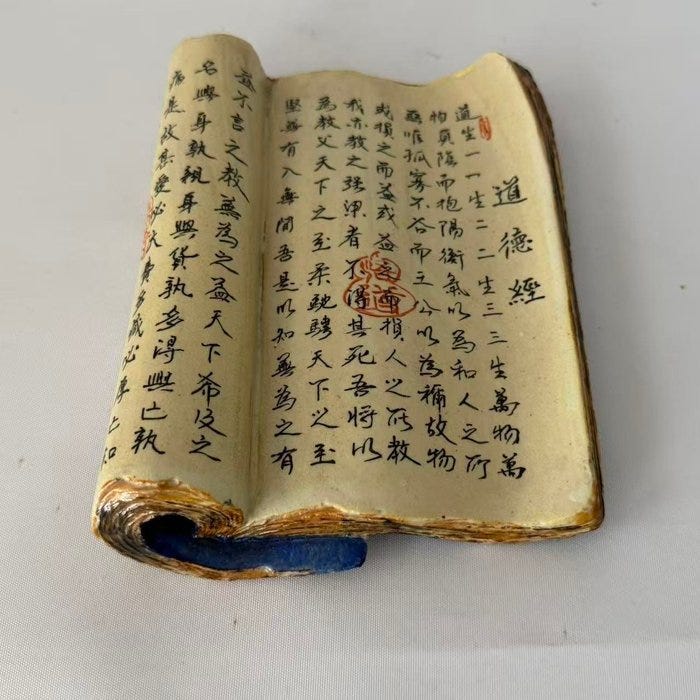 道德經
道生一一生二二生三三生萬物萬
物負陰而抱陽衝氣以為和人之所
惡唯孤寡不谷而王公以為稱故物
或損之而益或益之而損人之所教
我亦教之强梁者不得其死吾將以
為教父天下之至柔馳騁天下之至
堅無有入無間吾是以知無為之有
益不言之教無為之益天下希及之
名與身孰親身與貨孰多得與亡孰
病是故甚愛必大費多藏必厚亡知